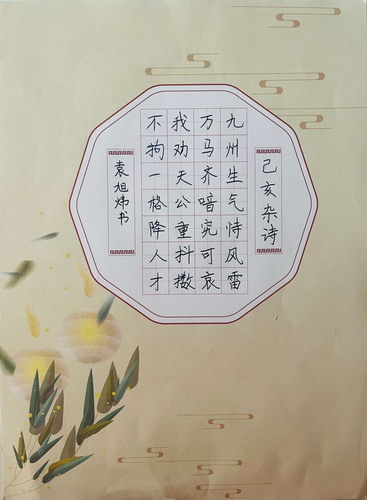 己亥杂诗
九州生气恃风雷
万马齐喑究可哀
我劝天公重抖擞
不拘一格降人才
袁旭炜书